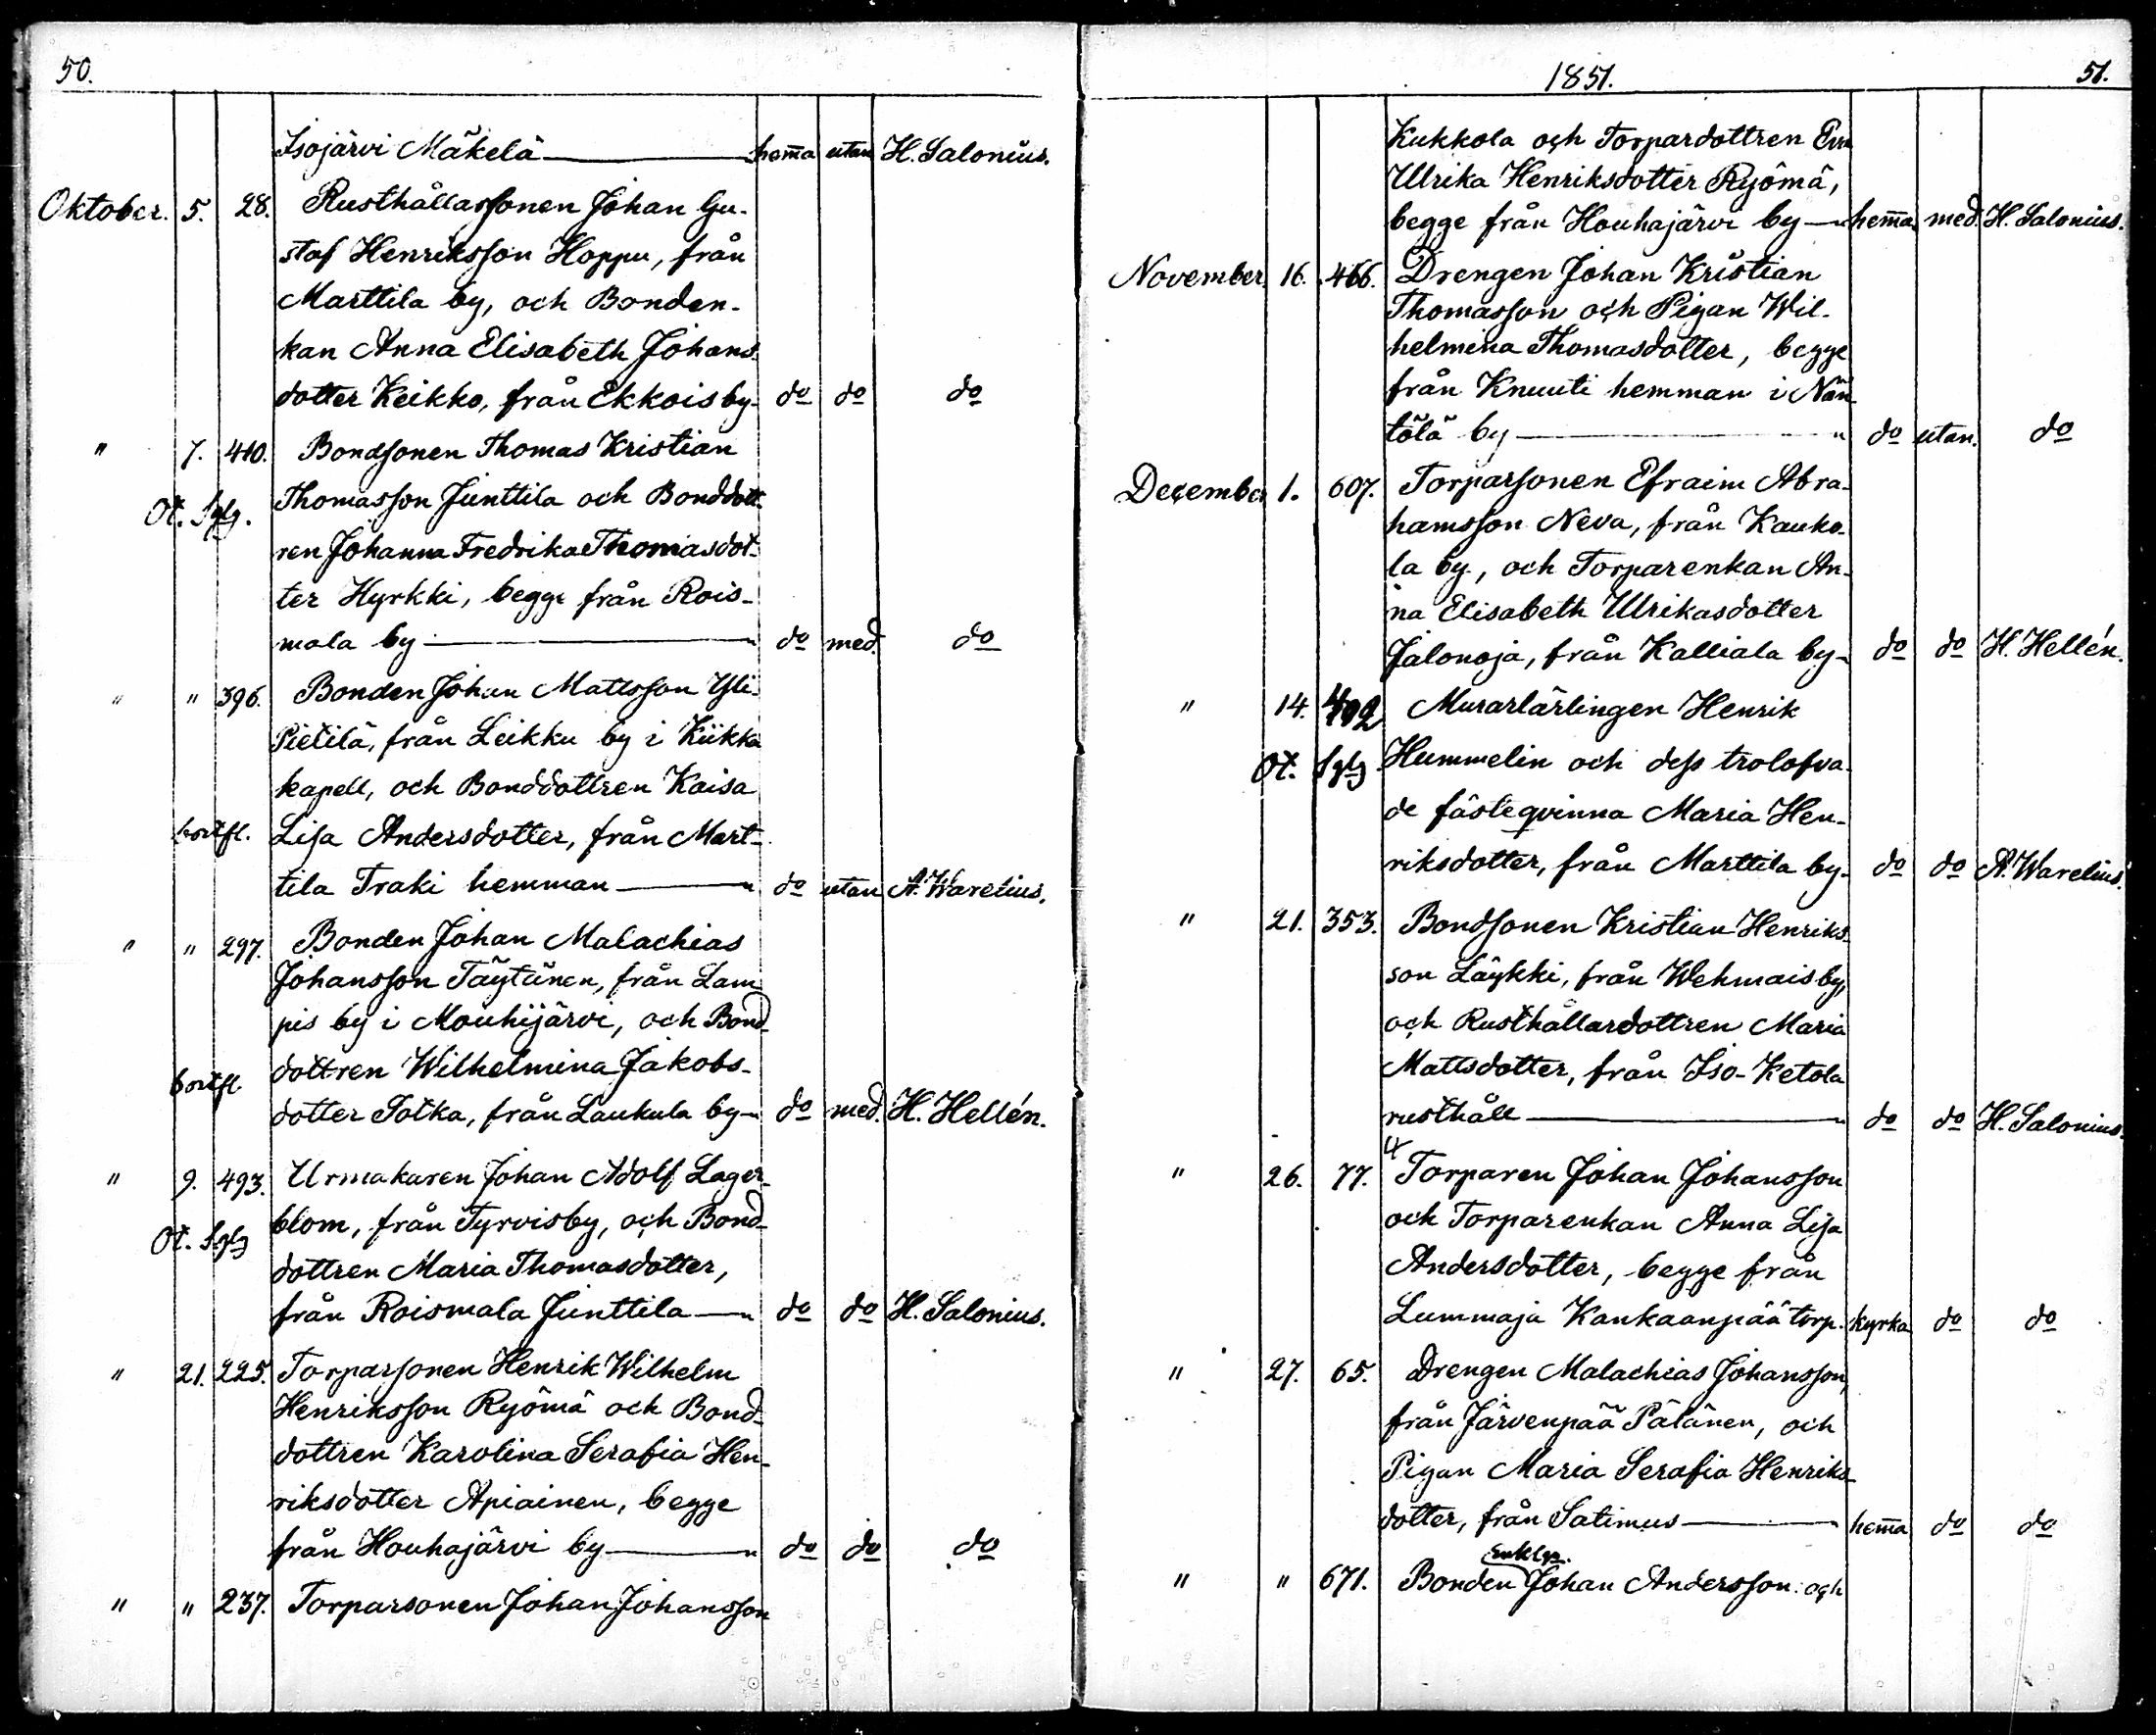 50.
Isojärvi Mäkelä — hem̄a utan H. Salonius.
Oktober. 5. 28. Rusthållarsonen Johan Gu-
staf Henriksson Hoppu, från
Marttila by, och Bonden-
kan Anna Elisabeth Johans-
dotter Keikko, från Ekkois by- do do do
" 7. 410. Bondsonen Thomas Kristian
Ot. Sglg. Thomasson Junttila och Bonddott-
ren Johanna Fredrika Thomasdot-
ter Hyrkki, begge från Rois-
mala by — do med. do
" " 396. Bonden Johan Mattsson Yli-
Pietilä, från Leikku by i Kiikka
kapell, och Bonddottren Kaisa
bortfl. Lisa Andersdotter, från Mart-
tila Traki hemman — do utan A. Warelius.
" " 297. Bonden Johan Malachias
Johansson Täytänen, från Lam-
pis by i Mouhijärvi, och Bond-
dottren Wilhelmina Jakobs-
bortfl. dotter Totka, från Laukula by- do med. H. Hellén.
" 9. 493. Urmakaren Johan Adolf Lager-
Ot. Sglg blom, från Tyrvis by, och Bond-
dottren Maria Thomasdotter,
från Roismala Junttila — do do H. Salonius.
" 21. 225. Torparsonen Henrik Wilhelm
Henriksson Ryömä och Bond-
dottren Karolina Serafia Hen-
riksdotter Apiainen, begge
från Houhajärvi by — do do do
" " 237. Torparsonen Johan Johansson
1851. 51.
Kukkola och Torpardottren Eva
Ulrika Henriksdotter Ryömä,
begge från Houhajärvi by — hem̄a med. H. Salonius.
November. 16. 466. Drengen Johan Kristian
Thomasson och Pigan Wil-
helmina Thomasdotter, begge
från Knuuti hemman i Nän-
tölä by — do utan. do
December 1. 607. Torparsonen Efraim Abra-
hamsson Neva, från Kauko-
la by, och Torparenkan An-
na Elisabeth Ulrikasdotter
Jalonoja, från Kalliala by- do do H. Hellén.
" 14. 492 Murarlärlingen Henrik
Ot. Sglg Hummelin och dess trolofva-
de fästeqvinna Maria Hen-
riksdotter, från Marttila by- do do A. Warelius.
" 21. 353. Bondsonen Kristian Henriks-
son Läykki, från Wehmais by,
och Rusthållardottren Maria
Mattsdotter, från Iso-Ketola
rusthåll — do do H. Salonius.
" 26. 77. 4 Torparen Johan Johansson
och Torparenkan Anna Lisa
Andersdotter, begge från
Lummaja Kankaanpää torp. kyrka do do
" 27. 65. Drengen Malachias Johansson,
från Järvenpää Pälänen, och
Pigan Maria Serafia Henriks-
dotter, från Satimus — hem̄a do do
Enklgn.
" " 671. Bonden Johan Andersson och